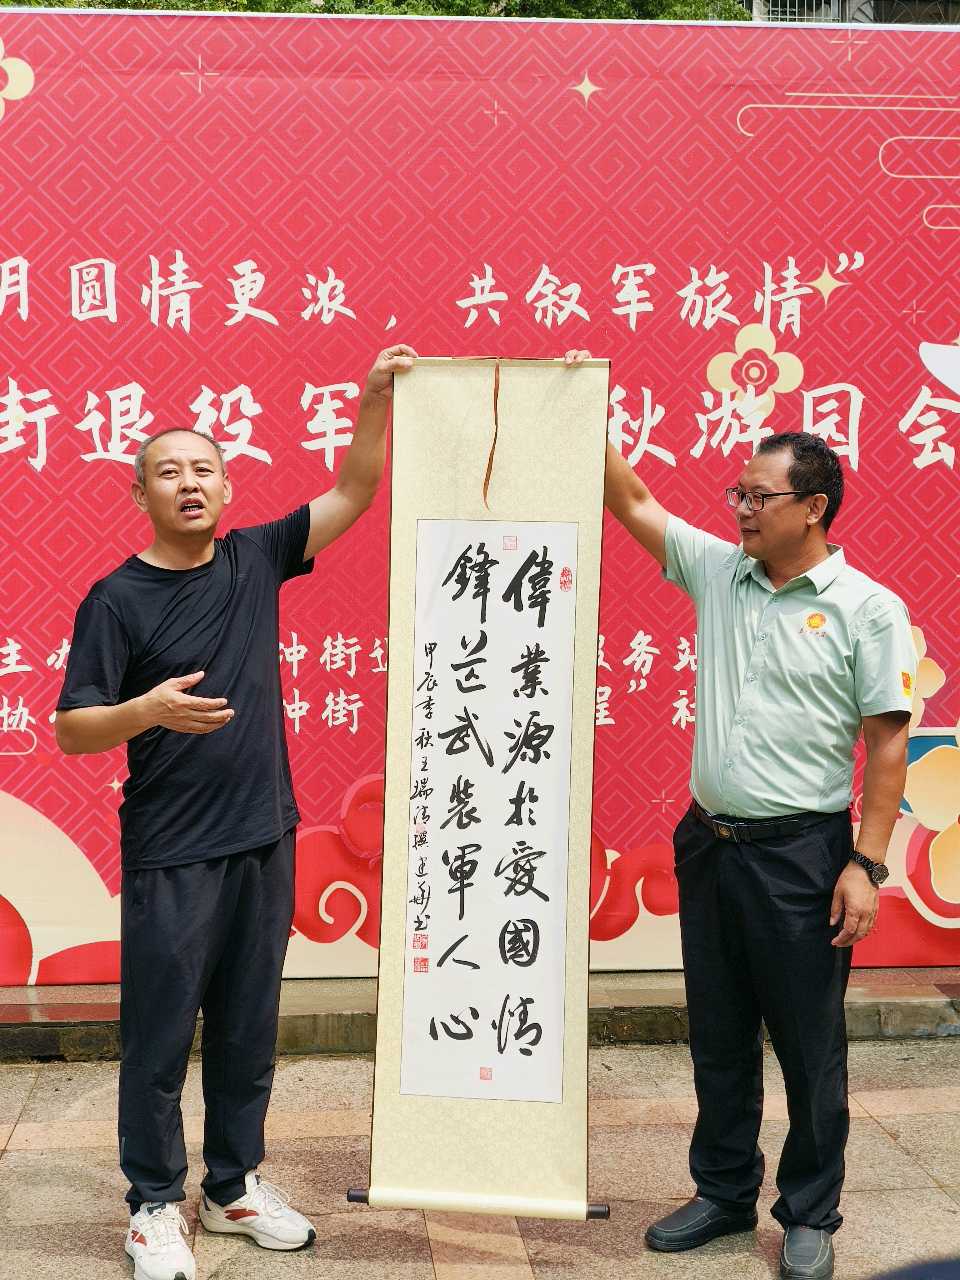 月圆情更浓，共叙军旅情”
街退役军
秋游园会
主办
冲街
服务站
协
冲街
程”社
偉業源於愛國情
鋒芒武裝軍人心
甲辰季秋王瑞清撰建華书